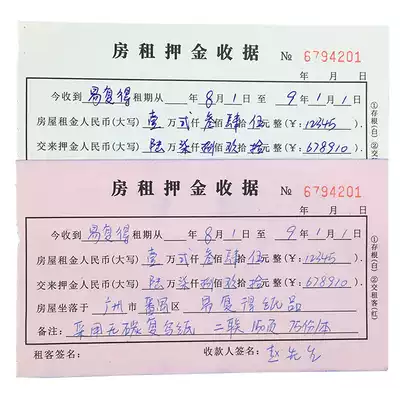 房租押金收据 № 6794201
年 月 日
今收到 易复得 租期从 年 8 月 1 日 至 9 年 1 月 1 日
房屋租金人民币(大写) 壹 万 弍 仟 叁 佰 肆 拾 伍 元 整(¥: 12345 ).
交来押金人民币(大写) 陆 万 柒 仟 捌 佰 玖 拾 拾 元 整(¥: 678910 ).
①存根(白) ②交
房租押金收据 № 6794201
年 月 日
今收到 易复得 租期从 年 8 月 1 日 至 9 年 1 月 1 日
房屋租金人民币(大写) 壹 万 弍 仟 叁 佰 肆 拾 伍 元 整(¥: 12345 ).
交来押金人民币(大写) 陆 万 柒 仟 捌 佰 玖 拾 拾 元 整(¥: 678910 ).
房屋坐落于 广州 市 番禺 区 易复得纸品
备注: 采用无碳复写纸 二联 150页 75份/本
租客签名: 收款人签名: 赵先生
①存根(白) ②交租客(红)